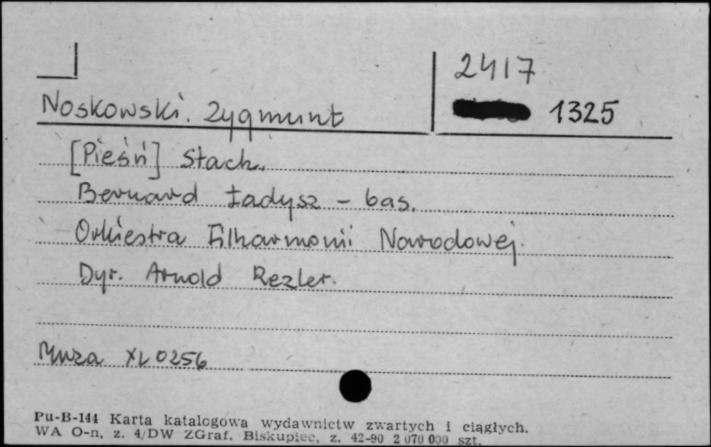 2417
Noskowski. Zygmunt 1325
[Pieśń] Stach.
Bernard Ładysz - bas.
Orkiestra Filharmonii Narodowej.
Dyr. Arnold Rezler.
Muza XL 0256
Pu-B-144 Karta katalogowa wydawnictw zwartych i ciągłych.
WA O-n, z. 4/DW ZGraf. Biskupiec, z. 42-90 2 070 000 szt.